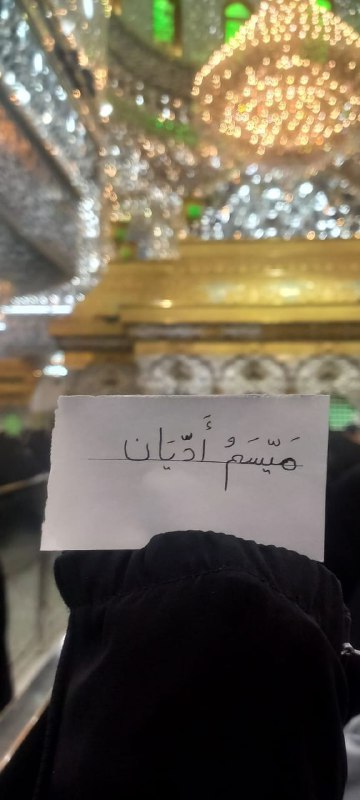 مَيّسَمُ أَدّيَان